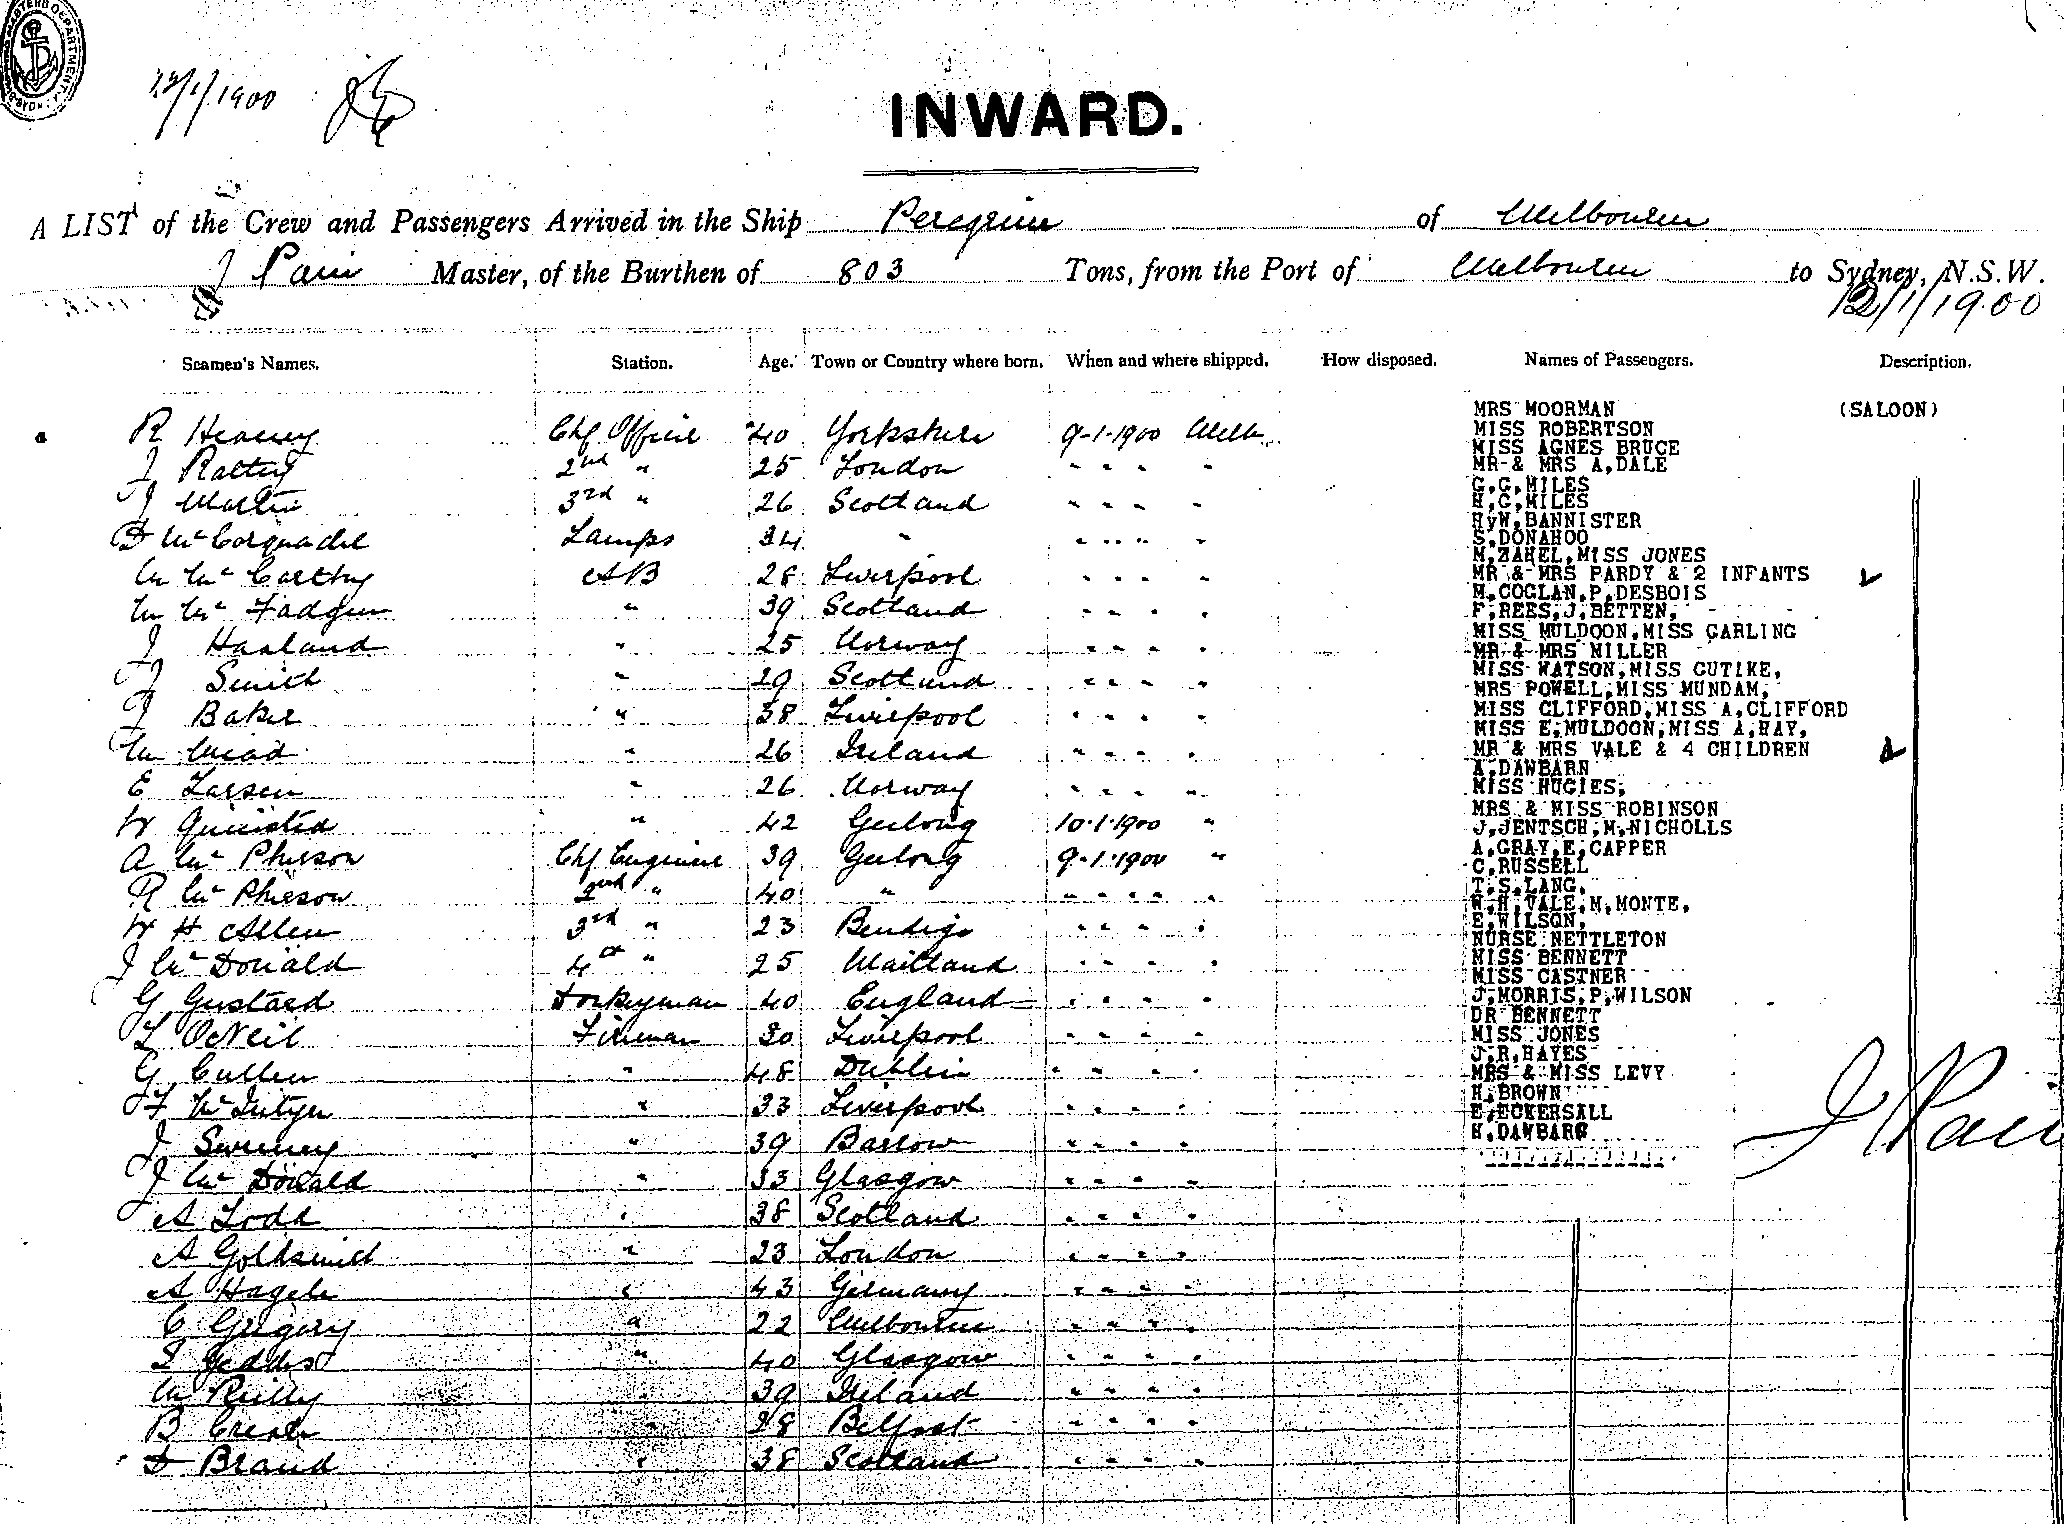 12/1/1900
INWARD.
A LIST of the Crew and Passengers Arrived in the Ship Peregrine of Melbourne
J Pain Master, of the Burthen of 803 Tons, from the Port of Melbourne to Sydney, N.S.W.
12/1/1900
Seamen's Names. Station. Age. Town or Country where born. When and where shipped. How disposed. Names of Passengers. Description.
R Heaney Chf Officer 40 Yorkshire 9-1-1900 Melb
J Rattray 2nd " 25 London " " " "
J Martin 3rd " 26 Scotland " " " "
D McCorquadel Lamps 34 " " " " "
W McCarthy AB 28 Liverpool " " " "
W McFadgen " 39 Scotland " " " "
J Haaland " 25 Norway " " " "
J Smith " 29 Scotland " " " "
J Baker " 38 Liverpool " " " "
W Mead " 26 Ireland " " " "
E Larsen " 26 Norway " " " "
W " 42 Geelong 10-1-1900 "
A McPherson Chf Engineer 39 Geelong 9-1-1900 "
R McPherson 2nd " 40 " " " " "
W H Allen 3rd " 23 Bendigo " " " "
J McDonald 4th " 25 Maitland " " " "
G Gustard Donkeyman 40 England " " " "
L O'Neil Fireman 30 Liverpool " " " "
G Cullen " 48 Dublin " " " "
F McIntyre " 33 Liverpool " " " "
J Sweeney " 39 Barrow " " " "
J McDonald " 33 Glasgow " " " "
A Todd " 38 Scotland " " " "
A Goldsmith " 23 London " " " "
A Hagele " 43 Germany " " " "
C Gregory " 22 Melbourne " " " "
Geddes " 40 Glasgow " " " "
W Reilly " 39 Ireland " " " "
B " 38 Belfast " " " "
D Brand " 38 Scotland " " " "
MRS MOORMAN (SALOON)
MISS ROBERTSON
MISS AGNES BRUCE
MR & MRS A,DALE
G,G,MILES
H,C,MILES
HyW,BANNISTER
S,DONAHOO
M,ZAHEL,MISS JONES
MR & MRS PARDY & 2 INFANTS
M,COGLAN,P,DESBOIS
F,REES,J,BETTEN,
MISS MULDOON,MISS GARLING
MR & MRS MILLER
MISS WATSON,MISS GUTIKE,
MRS POWELL,MISS MUNDAM,
MISS CLIFFORD,MISS A,CLIFFORD
MISS E,MULDOON,MISS A,HAY,
MR & MRS VALE & 4 CHILDREN
A,DAWBARN
MISS HUGIES,
MRS & MISS ROBINSON
J,JENTSCH,M,NICHOLLS
A,GRAY,E,CAPPER
C,RUSSELL
T,S,LANG,
W,H,VALE,M,MONTE,
E,WILSON,
NURSE NETTLETON
MISS BENNETT
MISS CASTNER
J,MORRIS,P,WILSON
DR BENNETT
MISS JONES
J,R,HAYES
MRS & MISS LEVY
H,BROWN
E,ECKERSALL
H,DAWBARG
J Pain